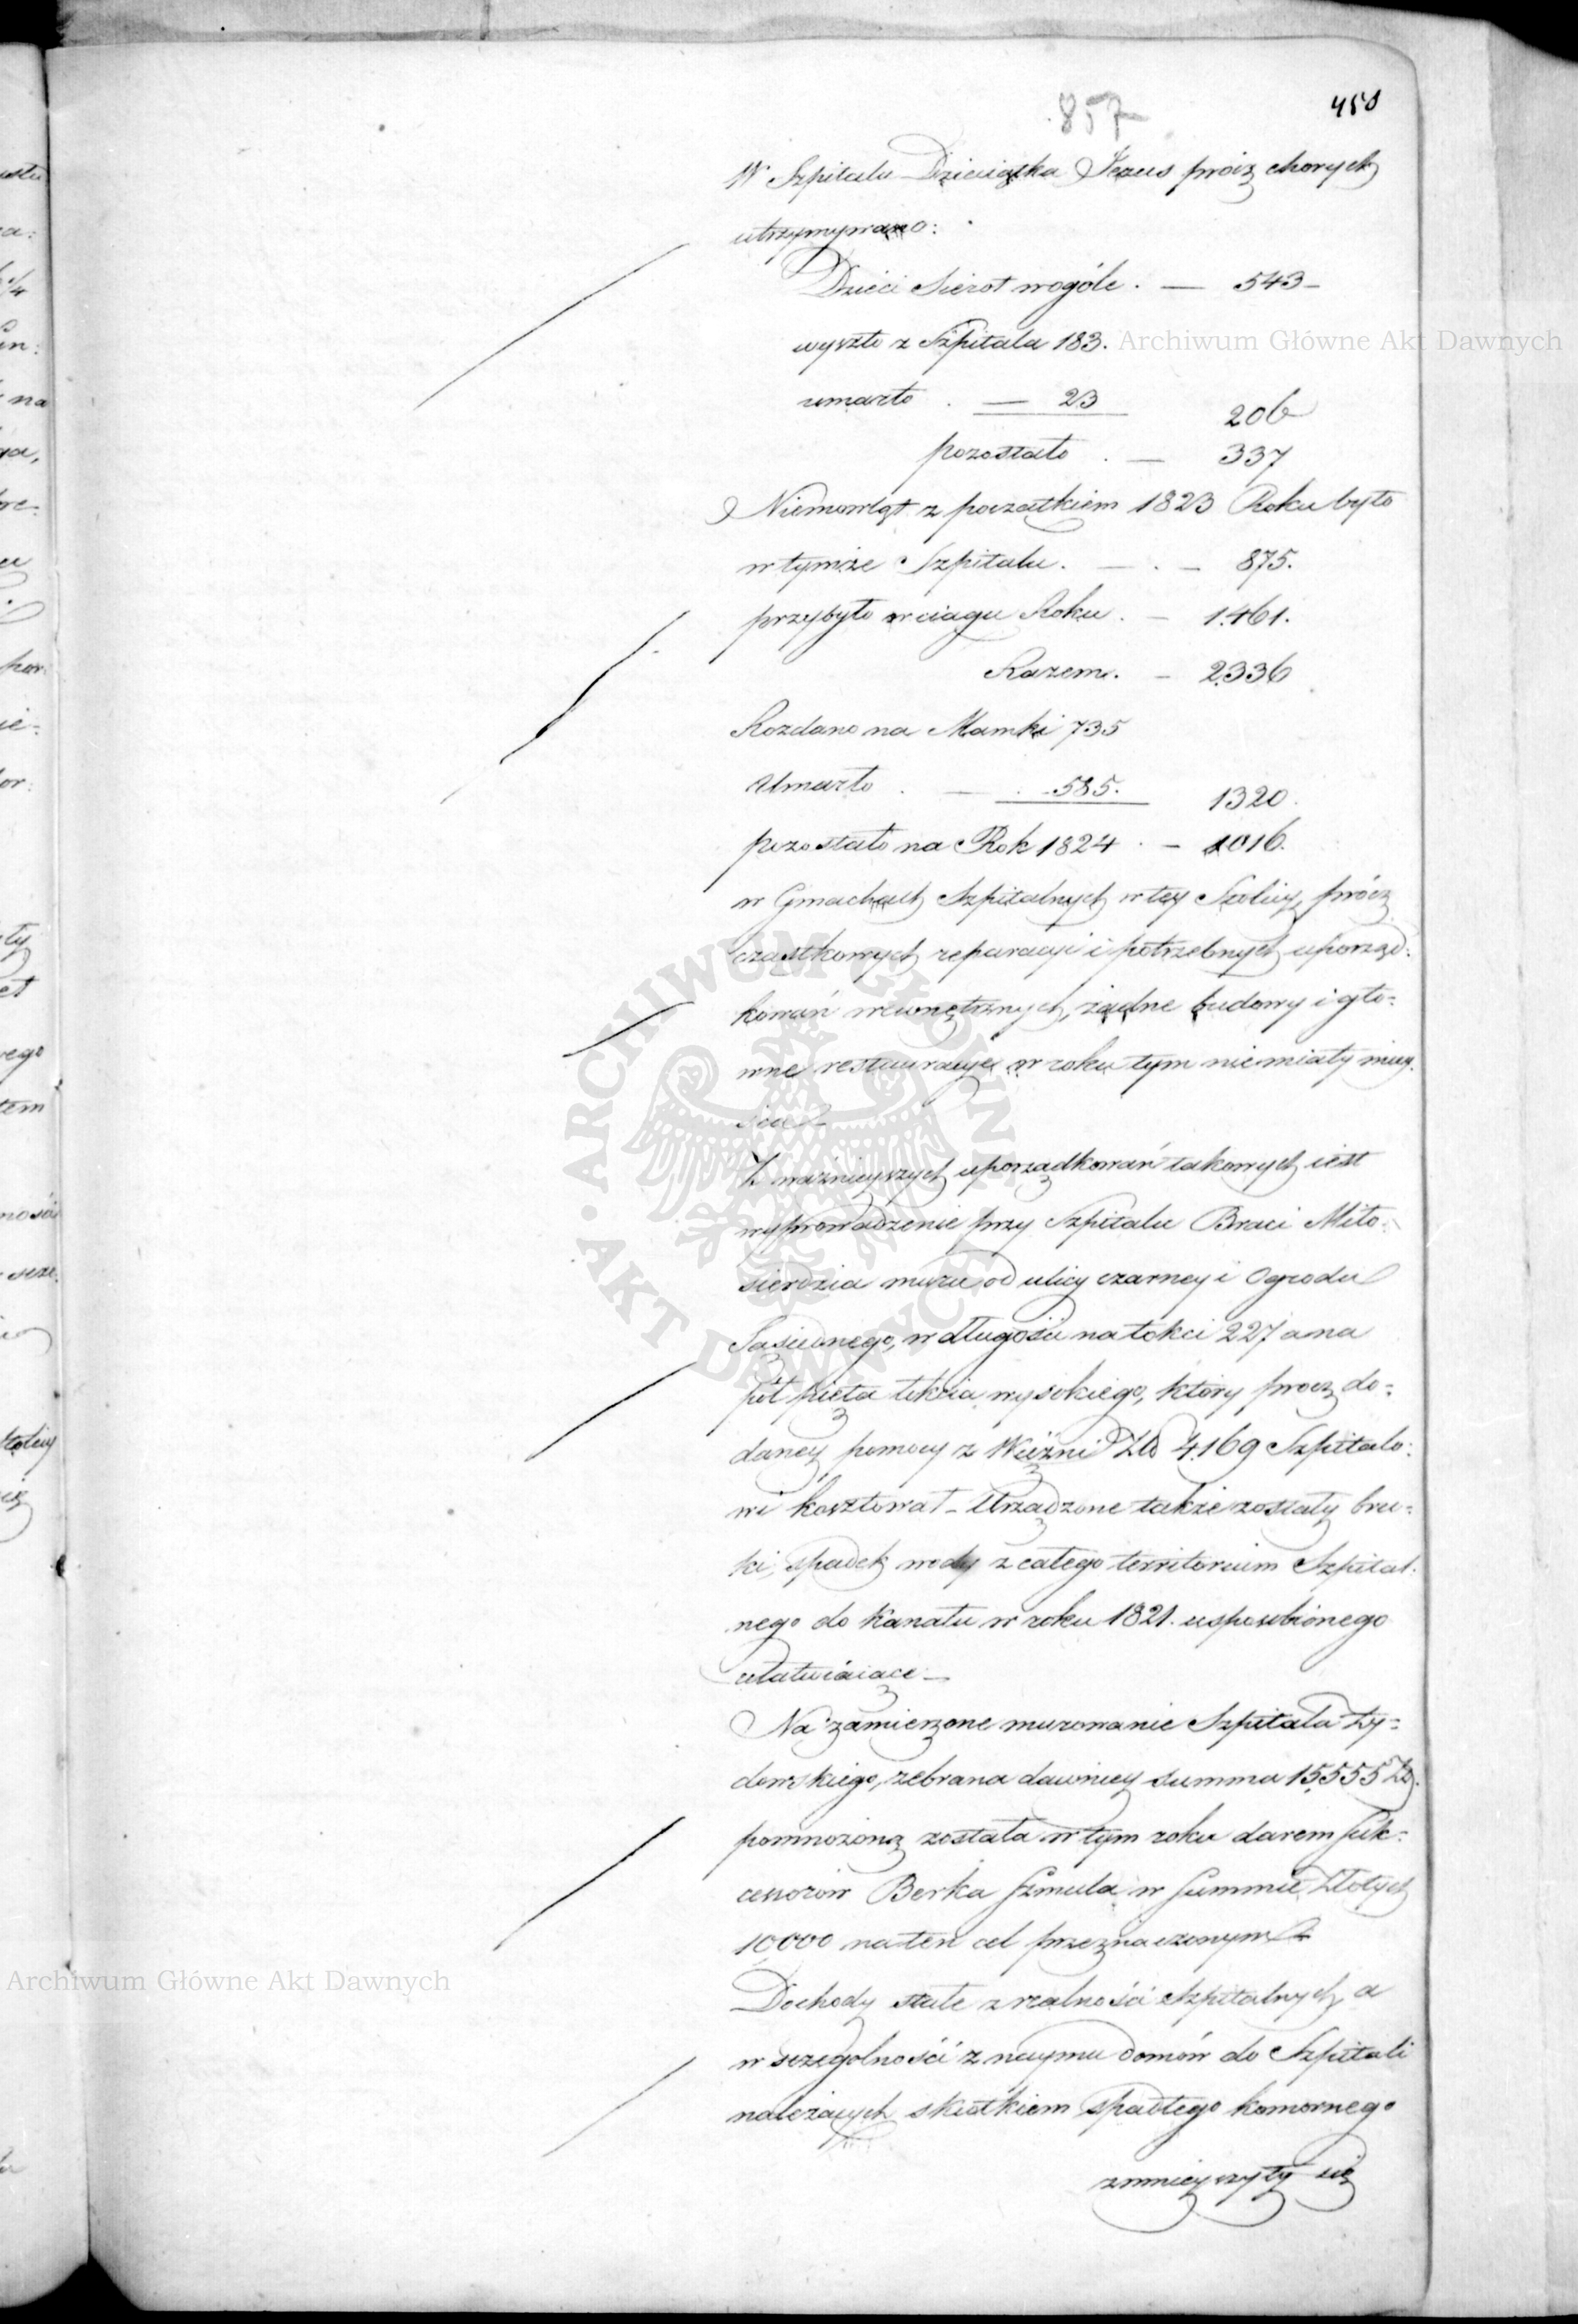 857
450
W Szpitalu Dzieciątka Jezus prócz chorych
utrzymywano:
Dzieci Sierot wogóle . — 543 —
wyszło z Szpitala 183.
umarło . — 23
206
pozostało . — 337
Niemowląt z początkiem 1823 Roku było
w tymże Szpitalu. — . — 875.
przybyło w ciągu Roku . — 1.461.
Razem. — 2.336
Rozdano na Mamki 735
Umarło . — . 585. 1320.
pozostało na Rok 1824 . — 1016.
w Gmachach Szpitalnych w tey Stolicy, prócz
cząstkowych reparacyi i potrzebnych uporząd:
kowań wewnętrznych, żadne budowy i głó=
wne restauracye w roku tym nie miały miey.
sca
Z ważnieyszych uporządkowań takowych iest
wyprowadzenie przy Szpitalu Braci Miło-
sierdzia muru od ulicy czarney i Ogrodu
Sąsiednego, w długości na łokci 227 a na
pół pięta łokcia wysokiego, który procz do=
daney pomocy z Więźni Złp 4.169 Szpitalo:
wi kosztował — Urządzone także zostały bru=
ki, spadek wody z całego territorium Szpital.
nego do Kanału w roku 1821. usposobionego
ułatwiaiące —
Na zamierzone murowanie Szpitala Ży=
dowskiego, zebrana dawniey summa 15,555 Zł.
pomnożoną została w tym roku darem Suk=
cessorów Berka Szmula w Summie Złotych
10,000 na ten cel przeznaczonym
Dochody stałe z realności Szpitalnych, a
w szczególności z naymu domów do Szpitali
należących skutkiem spadłego komornego
zmnieyszyły się
Archiwum Główne Akt Dawnych
Archiwum Główne Akt Dawnych
ARCHIWUM GŁÓWNE AKT DAWNYCH